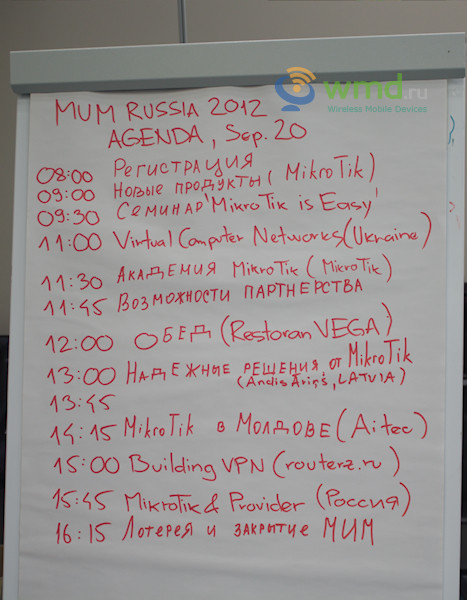 wmd.ru
Wireless Mobile Devices
MUM RUSSIA 2012
AGENDA, Sep. 20
08:00 Регистрация
09:00 Новые продукты (MikroTik)
09:30 Семинар 'MikroTik is Easy'
11:00 Virtual Computer Networks (Ukraine)
11:30 Академия MikroTik (MikroTik)
11:45 Возможности партнерства
12:00 Обед (Restoran VEGA)
13:00 Надежные решения от MikroTik
(Andis Āriņš, LATVIA)
13:45
14:15 MikroTik в Молдове (Aitec)
15:00 Building VPN (routerz.ru)
15:45 MikroTik & Provider (Россия)
16:15 Лотерея и закрытие МИМ